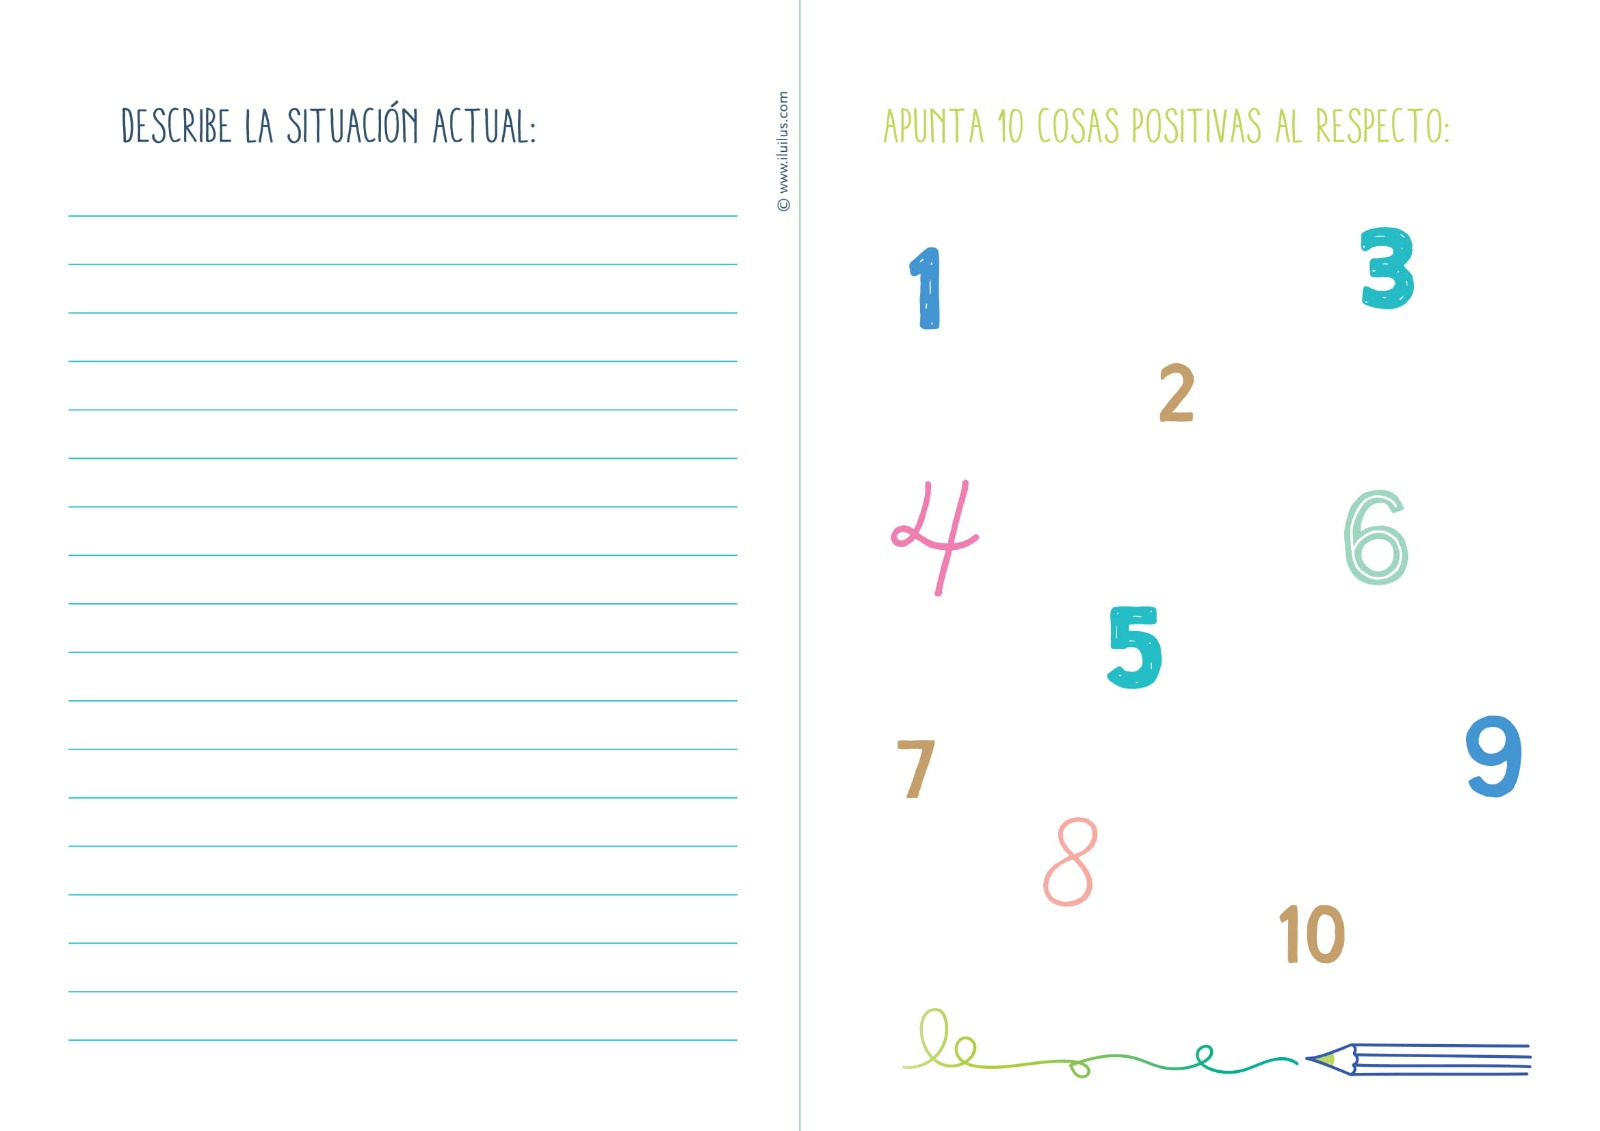 DESCRIBE LA SITUACIÓN ACTUAL:
© www.iluilus.com
APUNTA 10 COSAS POSITIVAS AL RESPECTO:
1
3
2
4
6
5
7
9
8
10